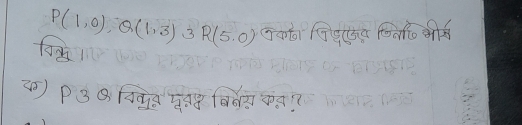 P(1,0), Q(1,3) ও R(5,0) একটি ত্রিভুজের তিনটি শীর্ষ
বিন্দু
ক) P ও Q বিন্দুর দূরত্ব নির্নয় কর?